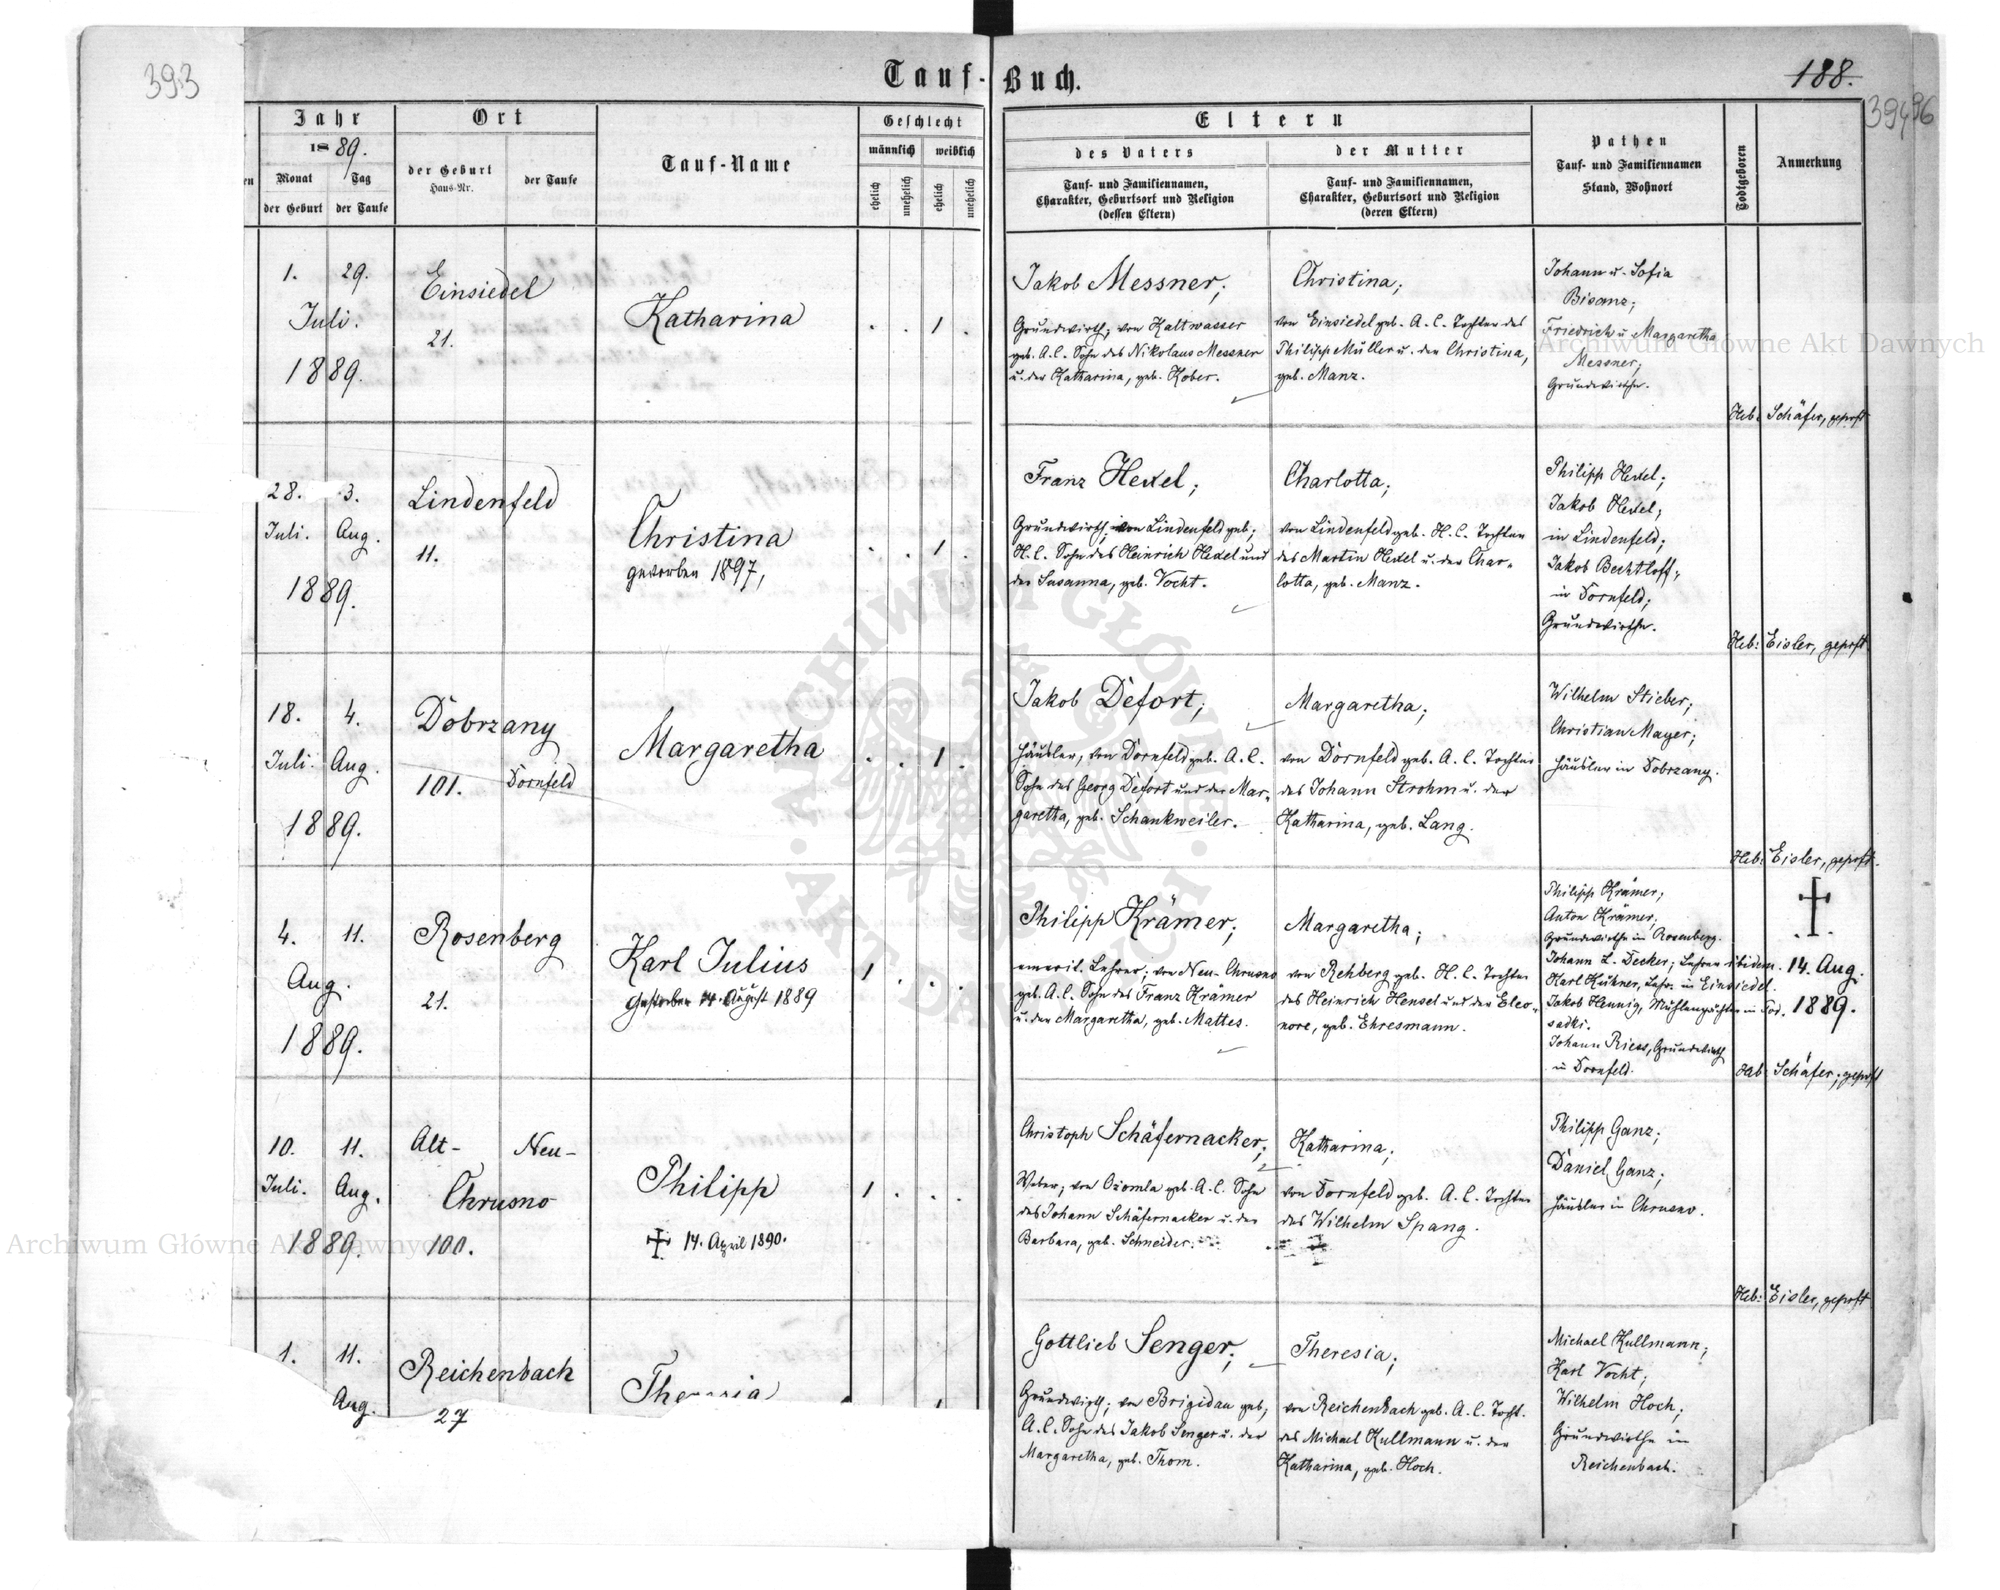 393
Tauf-Buch.
188.
394
96
Jahr
1889.
Monat Tag
der Geburt der Taufe
Ort
der Geburt
Haus-Nr.
der Taufe
Tauf-Name
Geschlecht
männlich weiblich
ehelich unehelich ehelich unehelich
Eltern
des Vaters
Tauf- und Familiennamen,
Charakter, Geburtsort und Religion
(dessen Eltern)
der Mutter
Tauf- und Familiennamen,
Charakter, Geburtsort und Religion
(deren Eltern)
Pathen
Tauf- und Familiennamen
Stand, Wohnort
Todtgeboren
Anmerkung
1. 29.
Juli.
1889.
Einsiedel
21.
Katharina
. . 1 .
Jakob Messner;
Grundwirth; von Kaltwasser
geb. A. C. Sohn des Nikolaus Messner
u. der Katharina, geb. Kober.
Christina;
von Einsiedel geb. A. C. Tochter des
Philipp Müller u. der Christina,
geb. Manz.
Johann u. Sofia
Bisanz;
Friedrich u. Margaretha
Messner;
Grundwirthe.
Heb: Schäfer, geprft
28. 3.
Juli. Aug.
1889.
Lindenfeld
11.
Christina
gestorben 1897,
. . 1 .
Franz Hexel;
Grundwirth; von Lindenfeld geb;
H. C. Sohn des Heinrich Hexel und
der Susanna, geb. Vocht.
Charlotta;
von Lindenfeld geb. H. C. Tochter
des Martin Hexel u. der Char-
lotta, geb. Manz.
Philipp Hexel;
Jakob Hexel;
in Lindenfeld;
Jakob Bechtloff;
in Dornfeld;
Grundwirthe.
Heb: Eisler, geprft
18. 4.
Juli. Aug.
1889.
Dobrzany
101. Dornfeld
Margaretha
. . 1 .
Jakob Defort;
Häusler, von Dornfeld geb. A. C.
Sohn des Georg Defort und der Mar-
garetta, geb. Schankweiler.
Margaretha;
von Dornfeld geb. A. C. Tochter
des Johann Strohm u. der
Katharina, geb. Lang.
Wilhelm Stieber;
Christian Mayer;
Häusler in Dobrzany.
Heb: Eisler, geprft.
4. 11.
Aug.
1889.
Rosenberg
21.
Karl Julius
Gestorben 14. August 1889
1 . . .
Philipp Krämer;
emerit. Lehrer; von Neu-Chrusno
geb. A. C. Sohn des Franz Krämer
u. der Margaretha, geb. Mattes.
Margaretha;
von Rehberg geb. H. C. Tochter
des Heinrich Hensel und der Eleo-
nore, geb. Ehresmann.
Philipp Krämer;
Anton Krämer;
Grundwirthe in Rosenberg.
Johann L. Decker; Lehrer ibidem.
Karl Kühner, Lehr. in Einsiedel.
Jakob Hennig, Mühlenpächter in Tor.
sadki.
Johann Riess, Grundwirth
in Dornfeld.
14. Aug.
1889.
Heb: Schäfer; geprft
10. 11.
Juli. Aug.
1889.
Alt- Neu-
Chrusno
100.
Philipp
14. April 1890.
1 . . .
Christoph Schäfernacker;
Weber; von Ożomla geb. A. C. Sohn
des Johann Schäfernacker u. der
Barbara, geb. Schneider.
Katharina;
von Dornfeld geb. A. C. Tochter
des Wilhelm Spang.
Philipp Ganz;
Daniel Ganz;
Häusler in Chrusno.
Heb: Eisler, geprft
1. 11.
Aug.
Reichenbach
27
Theresia
Gottlieb Senger;
Grundwirth; von Brigidau geb;
A. C. Sohn des Jakob Senger u. der
Margaretha, geb. Thom.
Theresia;
von Reichenbach geb. A. C. Tocht.
des Michael Kullmann u. der
Katharina, geb. Hoch.
Michael Kullmann;
Karl Vocht;
Wilhelm Hoch;
Grundwirthe in
Reichenbach.
Archiwum Główne Akt Dawnych
Archiwum Główne Akt Dawnych
ARCHIWUM GŁÓWNE AKT DAWNYCH